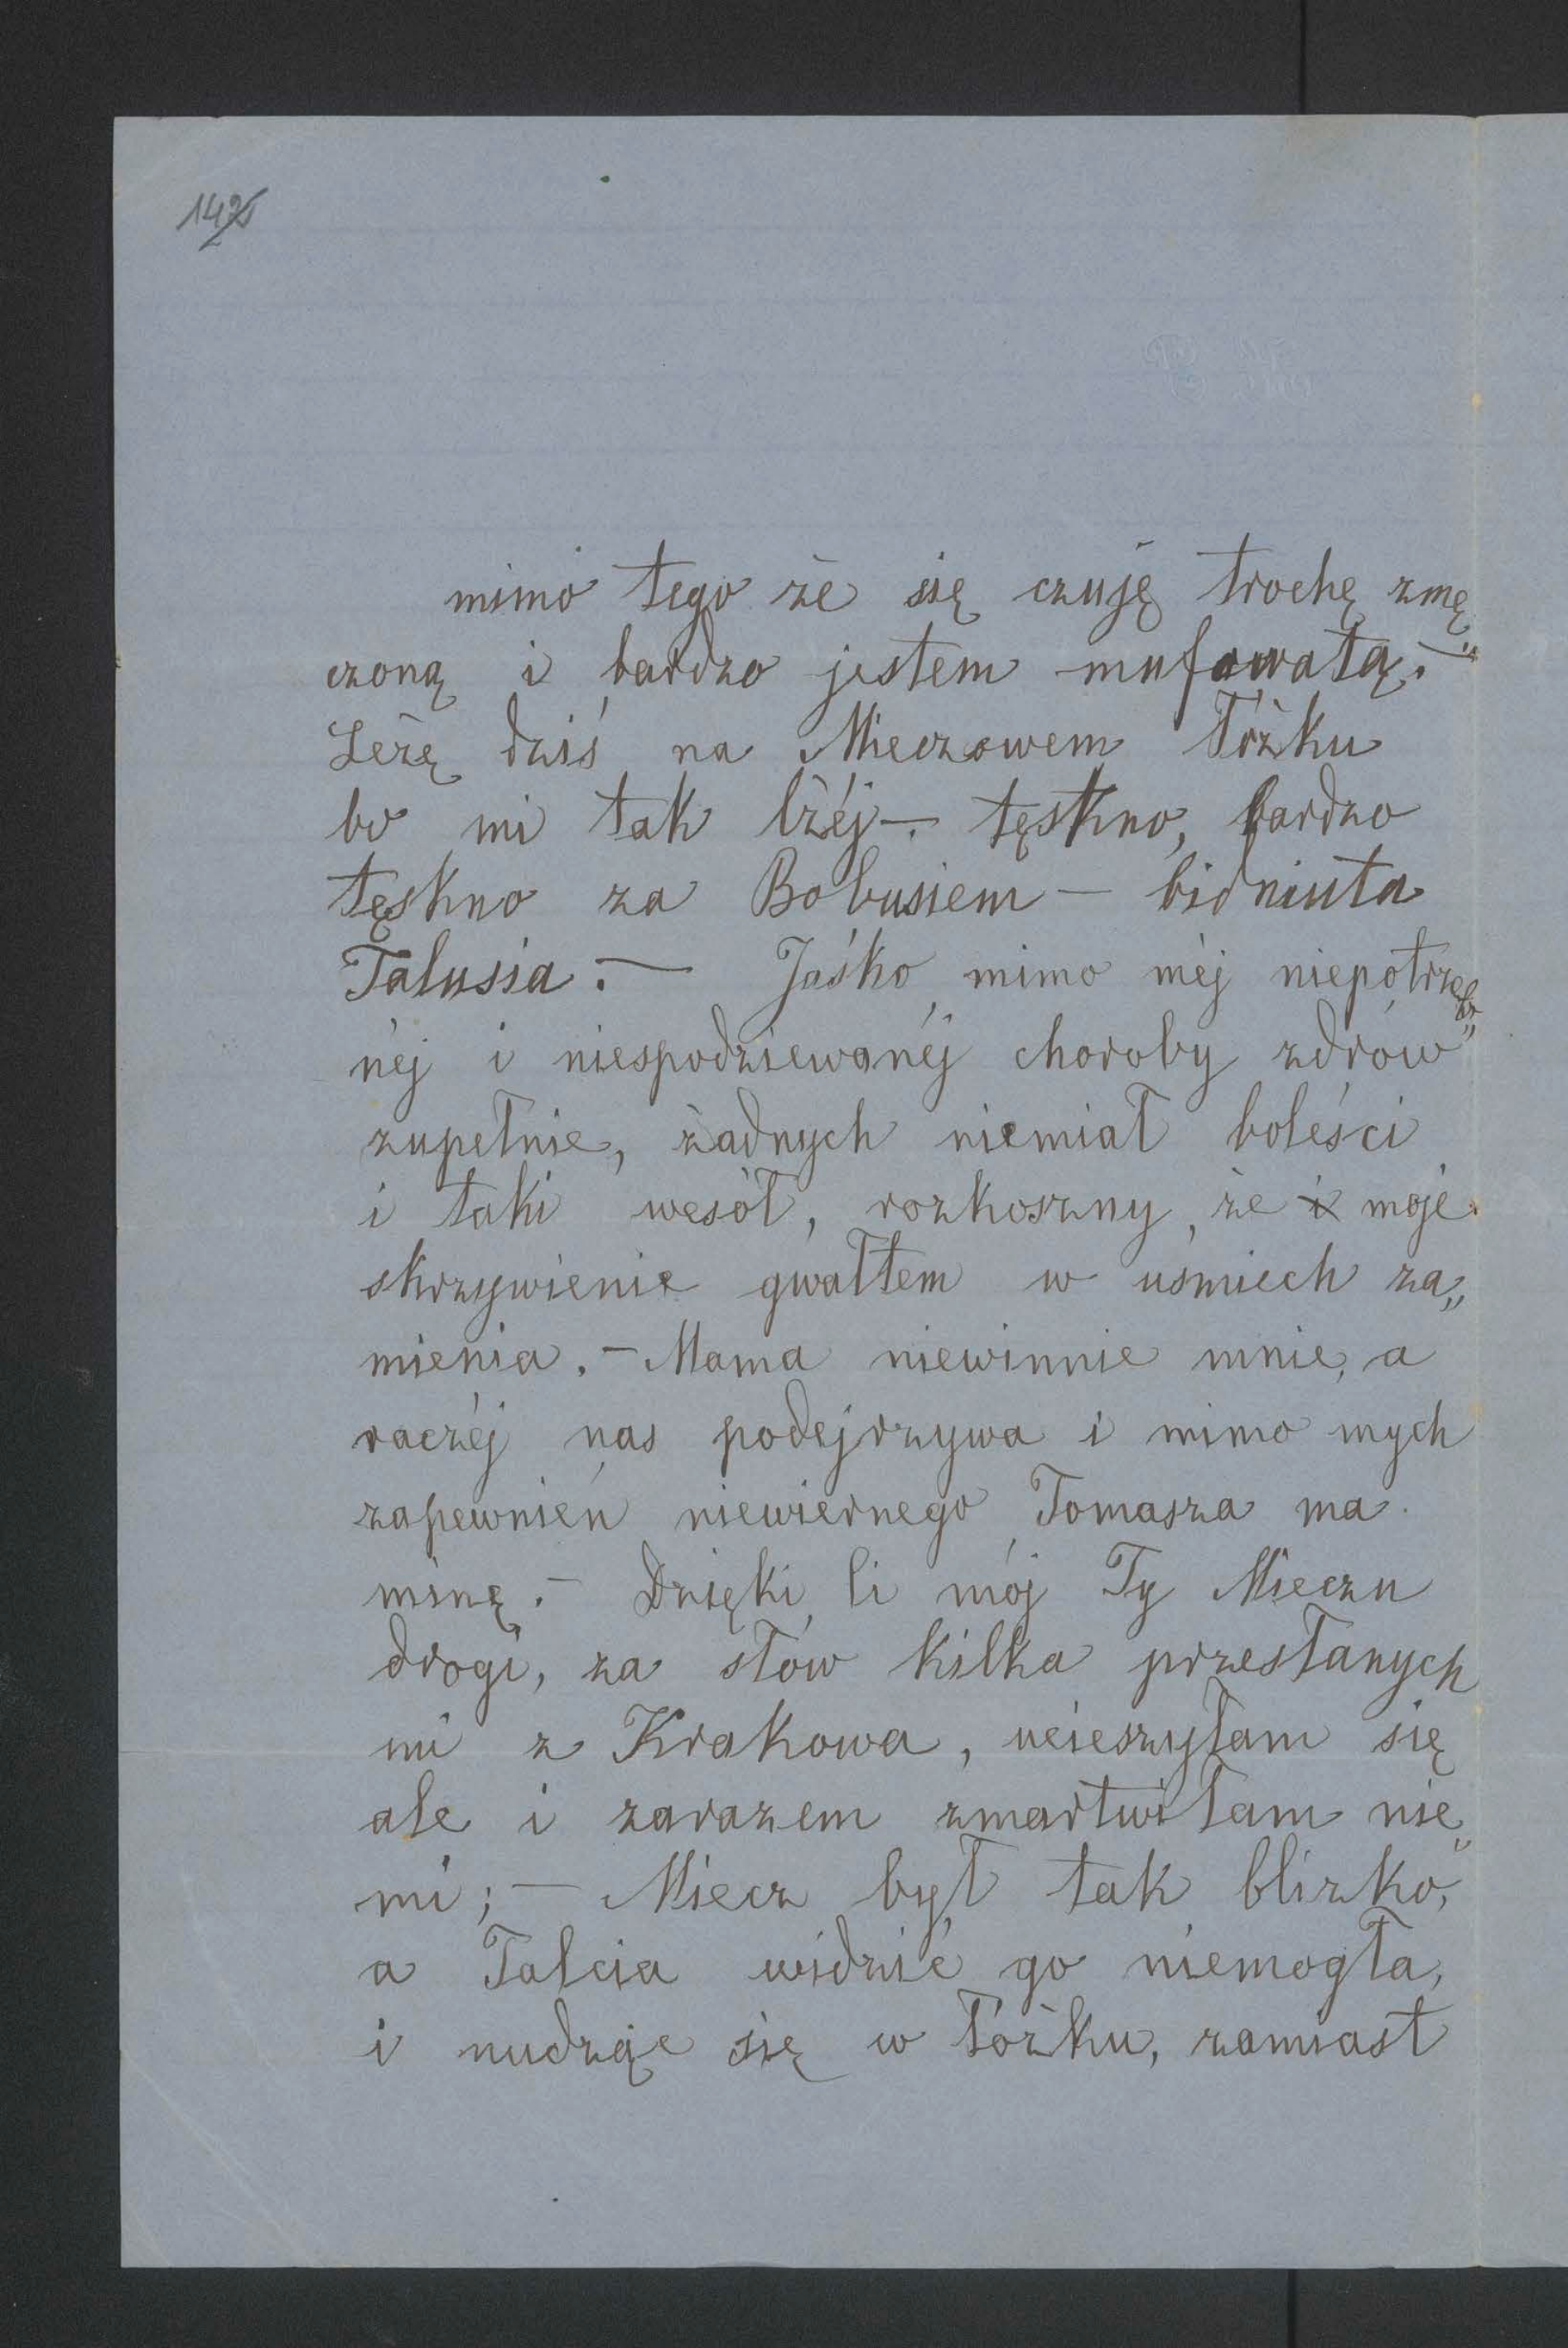 142
mimo tego że się czuję trochę zmę„
czoną i bardzo jestem mufowatą.—
Leżę dziś na Mieczowem łóżku
bo mi tak lżéj—. tęskno, bardzo
tęskno za Bobusiem — bidniuta
Talusia. — Jaśko mimo méj niepotrzeb„
néj i niespodziewanéj choroby zdrów
zupełnie, żadnych niemiał boleści
i taki wesół, rozkoszny, że moje
skrzywienie gwałtem w uśmiech za„
mienia. — Mama niewinnie mnie, a
raczéj nas podejrzywa i mimo mych
zapewnień niewiernego Tomasza ma
minę. — Dzięki Ci mój Ty Mieczu
drogi, za słów kilka przesłanych
mi z Krakowa, ucieszyłam się
ale i zarazem zmartwiłam nie„
mi; — Miecz był tak blizko,
a Talcia widzić go niemogła,
i nudząc się w łóżku, zamiast